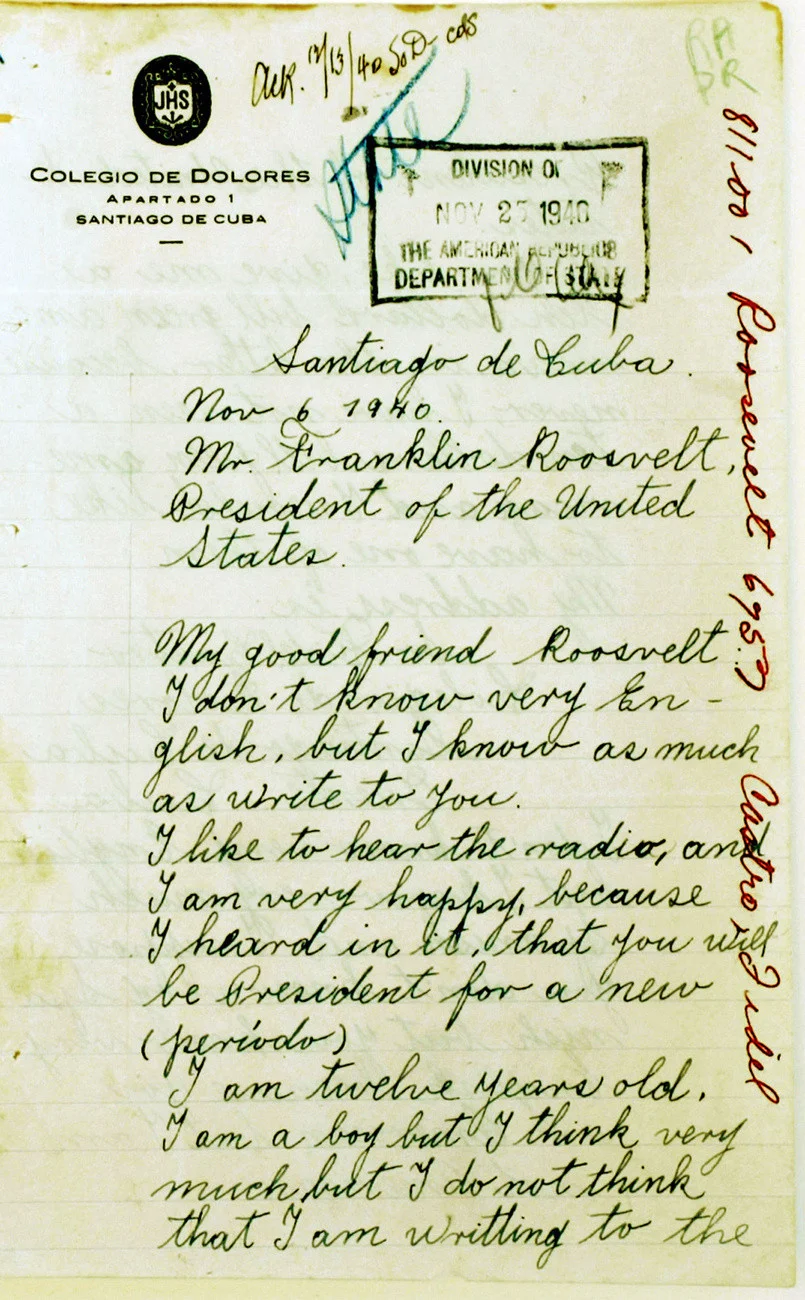 Ack. 12/13/40 SoD- cds
RA
DR
JHS
COLEGIO DE DOLORES
APARTADO 1
SANTIAGO DE CUBA
State
DIVISION OF
NOV 25 1940
THE AMERICAN REPUBLICS
DEPARTMENT OF STATE
811.001 Roosevelt 6957
Castro, Fidel
Santiago de Cuba.
Nov 6 1940.
Mr. Franklin Roosvelt,
President of the United
States.
My good friend Roosvelt
I don't know very En-
glish, but I know as much
as write to you.
I like to hear the radio, and
I am very happy, because
I heard in it, that you will
be President for a new
(período)
I am twelve years old.
I am a boy but I think very
much, but I do not think
that I am writting to the